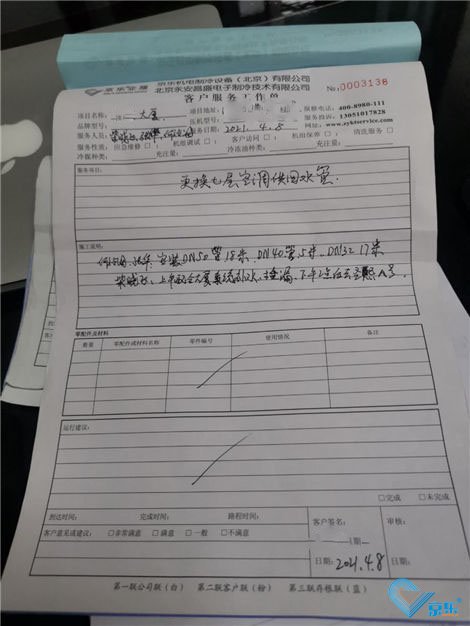 京乐机电制冷设备（北京）有限公司
北京永安昌盛电子制冷技术有限公司
客户服务工作单
No:0003138
项目名称: 大厦 项目地址: 报修电话: 400-8980-111
品牌型号: 压机型号: 服务热线: 13051017828
服务人员: 服务日期: 2021.4.8 网址: www.zyktservice.com
服务性质: 应急维修 □ 机组调试 □ 客户访问 □ 机组保养 □ 清洗服务 □
冷媒种类: 充注量: 冷冻油种类: 充注量:
服务项目:
更换七层空调供回水管.
施工说明:
安装DN50管18米、DN40管5米、DN32 17米
上午配合大厦系统
零配件及材料
数量 零配件或材料名称 零件编号 使用情况 备注
运行建议:
□完成 □未完成
到达时间: 完成时间: 路程时间:
客户意见或建议: □非常满意 □满意 □一般 □不满意
客户签名: 审核:
日期: 2021.4.8 日期:
第一联公司联（白） 第二联客户联（粉） 第三联存根联（蓝）
京乐